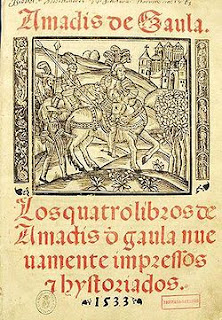 Amadis de Gaula.
Los quatro libros de
Amadis d̄ gaula nue
uamente impressos
⁊ hystoriados.
1533